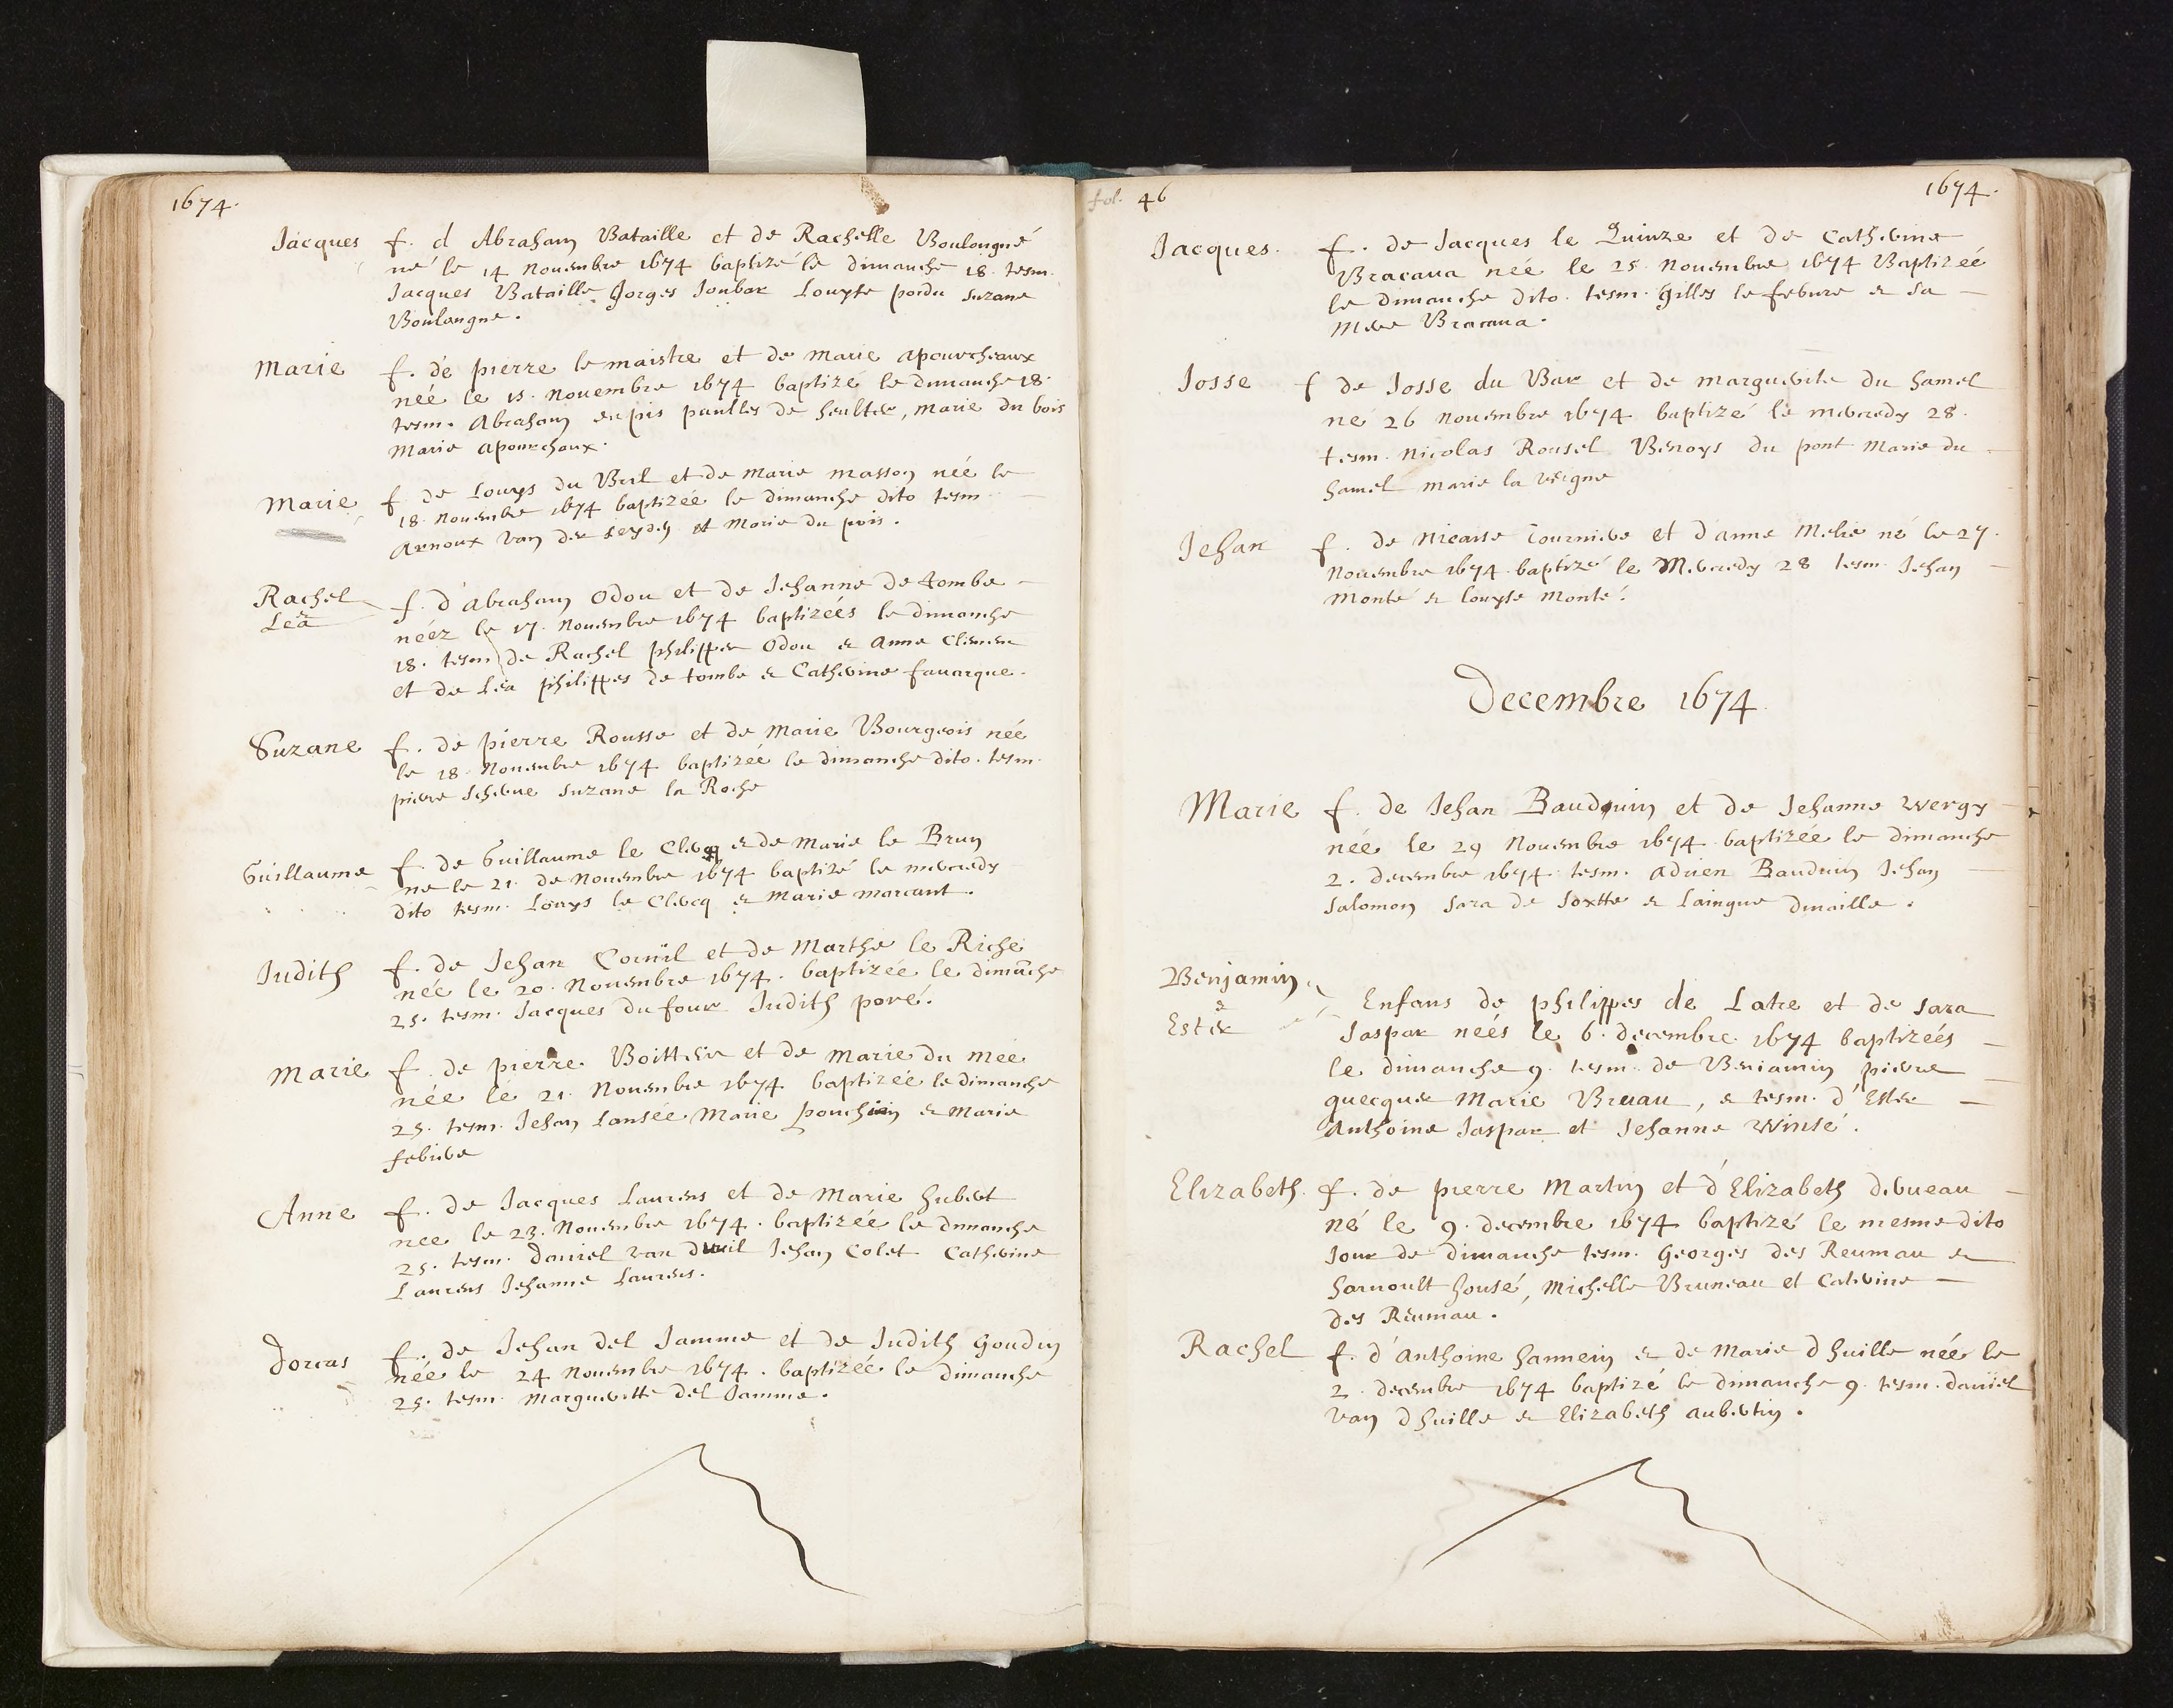 1674.
Jacques f. d Abraham Bataille et de Rachelle Boulongné
né le 14 Nouembre 1674 baptizé le dimanche 18. tesm.
Jacques Bataille Jorges Jonbar Louyse pordu Suzane
Boulongne.
Marie f. de pierre le maistre et de Marie apourcheaux
néé le 15. Nouembre 1674 baptizé le dimanche 18.
tesm. Abraham paulles de Marie du bois
Marie apourchaux.
Marie f. de Louys du Bril et de Marie masson néé le
18. Nouembre 1674 baptizéé le dimanche dito tesm.
Arnoux van der Leyden et Marie du pois.
Rachel f. d'abraham Odou et de Jehanne de tombe
Léa néez le 17. Nouembre 1674 baptizéés le dimanche
18. tesm de Rachel philippe Odou & Anne Clemen
et de Léa philippes de tombe & Catherine fauarque.
Suzane f. de pierre Rousse et de Marie Bourgeois néé
le 18. Nouembre 1674 baptizéé le dimanche dito. tesm.
pierre Suzane la Roche
Guillaume f. de Guillaume le Clercq & de Marie le Brun
ne le 21. de Nouembre 1674 baptizé le mercredy
dito tesm. Louys le Clercq & Marie marcant.
Judith f. de Jehan Cornïl et de Marthe le Riche
néé le 20. Nouembre 1674. baptizéé le dimāche
25. tesm. Jacques du four Judith poré.
Marie f. de pierre Boitteir et de Marie du Méé
néé le 21. Nouembre 1674 baptizéé le dimanche
25. tesm. Jehan Lanséé Marie pouchin & Marie
febure
Anne f. de Jacques Laurens et de Marie hubert
néé le 23. Nouembre 1674. baptizéé le dimanche
25. tesm. Daniel van Jehan Colet Catherine
Laurens Jehanne Laurens.
Dorcas f. de Jehan del Jamme et de Judith Goudin
néé le 24 Nouembre 1674. baptizéé le dimanche
25. tesm. Margueritte del Jamme.
fol. 46 1674.
Jacques. f. de Jacques le Quinze et de Catherine
Bracaua néé le 25. Nouembre 1674 Baptizéé
le dimanche dito. tesm. Gilles le febure & sa
Mere Bracaua.
Josse f de Josse du Bar et de marguerite du hamel
né 26 Nouembre 1674 baptizé le mercredy 28.
tesm. Nicolas Rousel Benoys du pont Marie du
hamel marie la veigne
Jehan f. de Nicaise Tourniere et d'anne Melié né le 27.
Nouembre 1674. baptizé le Mercredy 28 tesm. Jehan
Monté & Louyse Monté.
Decembre 1674
Marie f. de Jehan Bauduin et de Jehanne Wergy
néé le 29 Nouembre 1674 baptizéé le dimanche
2. decembre 1674 tesm. adrien Bauduin Jehan
Salomon Sara de & Laingue dinaille.
Benjamin
& Enfans de philippes de Latre et de Sara
Ester Jaspar néés le 6. decembre 1674 baptizéés
le dimanche 9. tesm. de Beniamin pierre
quecque Marie Bruau, & tesm. d'Ester
Anthoine Jaspar et Jehanne Winsé.
Elizabeth. f. de pierre Martin et d'Elizabeth derueau
né le 9. decembre 1674 baptizé le mesme dito
Jour de dimanche tesm. Georges des Reumau &
harnoult housé, Michelle Bruneau et Caterine
des Reumau.
Rachel f. d'Anthoine hannein & de Marie d huille néé le
2. decembre 1674 baptizé le dimanche 9. tesm. daniel
van d huille & Elizabeth aubertin.